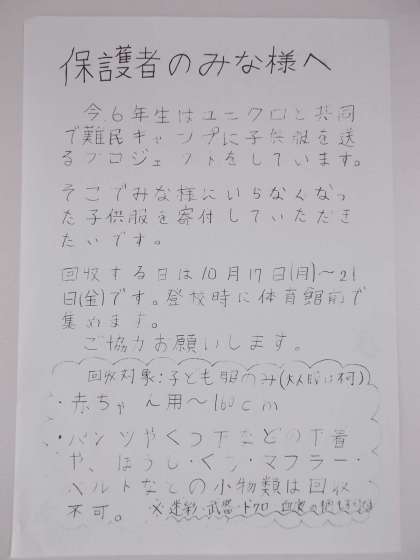 保護者のみな様へ
今、6年生はユニクロと共同
で難民キャンプに子供服を送
るプロジェクトをしています。
そこでみな様にいらなくなっ
た子供服を寄付していただき
たいです。
回収する日は10月17日(月)～21
日(金)です。登校時に体育館前で
集めます。
ご協力お願いします。
回収対象:子ども服のみ(大人服は不可)
・赤ちゃん用～160cm
・パンツやくつ下などの下着
や、ぼうし・くつ・マフラー・
ベルトなどの小物類は回収
不可。 ※迷彩・武器・ドクロ